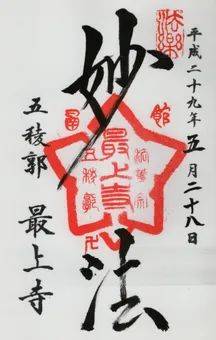 平成二十九年五月二十八日
妙法
五稜郭 最上寺
法華宗
最上寺
五稜郭
函館